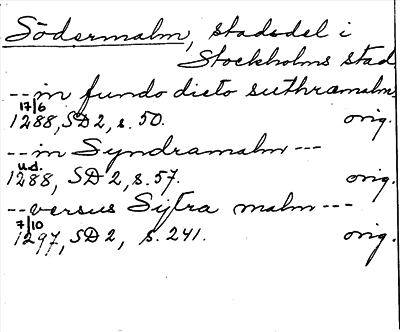 Södermalm, stadsdel i
Stockholms stad
-- in fundo dicto suthramalm
17/6
1288, SD 2, s. 50. orig.
-- in Syndramalm ---
u.d.
1288, SD 2, s. 57. orig.
-- versus Sytra malm ---
7/10
1297, SD 2, s. 241. orig.